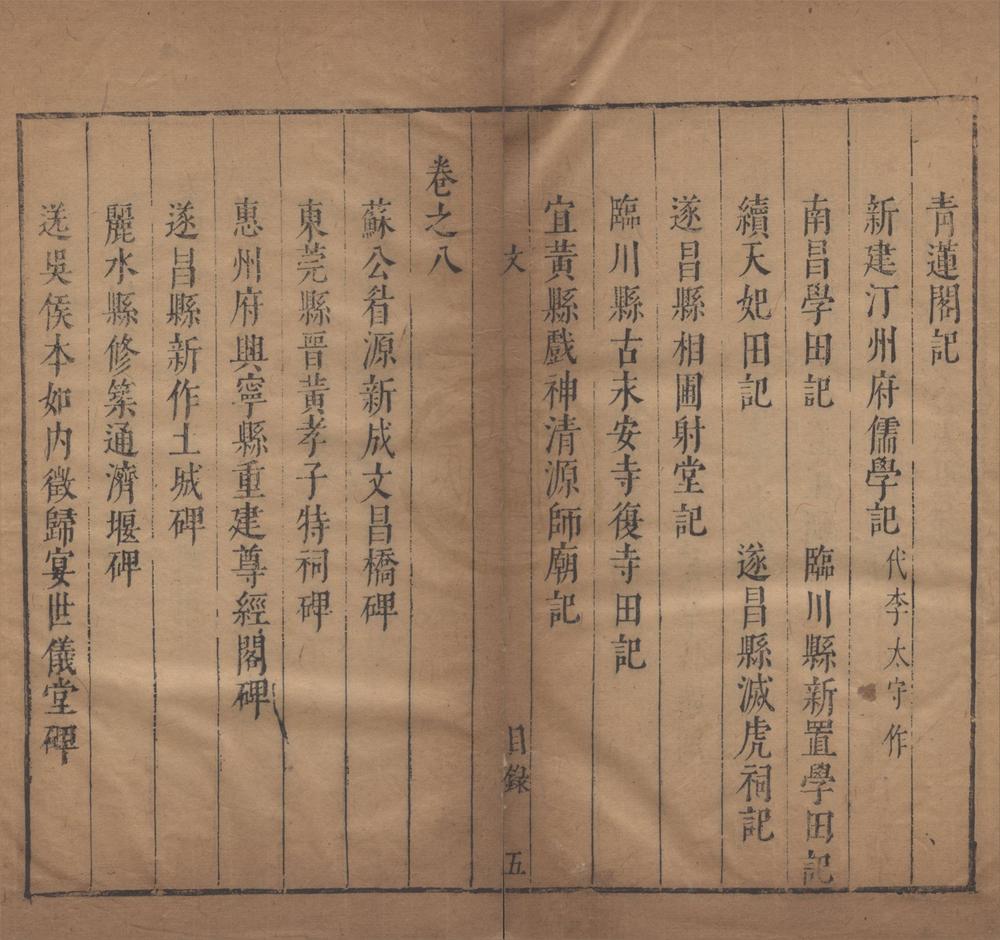 青蓮閣記
新建汀州府儒學記 代李太守作
南昌學田記 臨川縣新置學田記
續天妃田記 遂昌縣滅虎祠記
遂昌縣相圃射堂記
臨川縣古永安寺復寺田記
宜黃縣戲神清源師廟記
文 目錄 五
卷之八
蘇公眢源新成文昌橋碑
東莞縣晉黃孝子特祠碑
惠州府興寧縣重建尊經閣碑
遂昌縣新作土城碑
麗水縣修築通濟堰碑
送吳侯本如內徵歸宴世儀堂碑